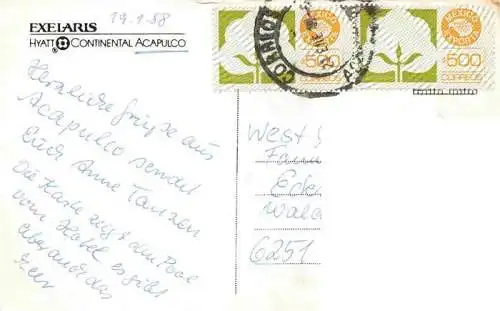 19.1.88
EXELARIS
HYATT CONTINENTAL ACAPULCO
Herzliche Grüße aus
Acapulco sendet
Euch Anne Tanzen
Die Karte zeigt den Pool
vom Hotel es gibt
aber auch das
Meer
CORREOS
MEXICO
EXPORTA
$500
CORREOS
MEXICO
EXPORTA
$500
CORREOS
West
Fam
Wald
6251